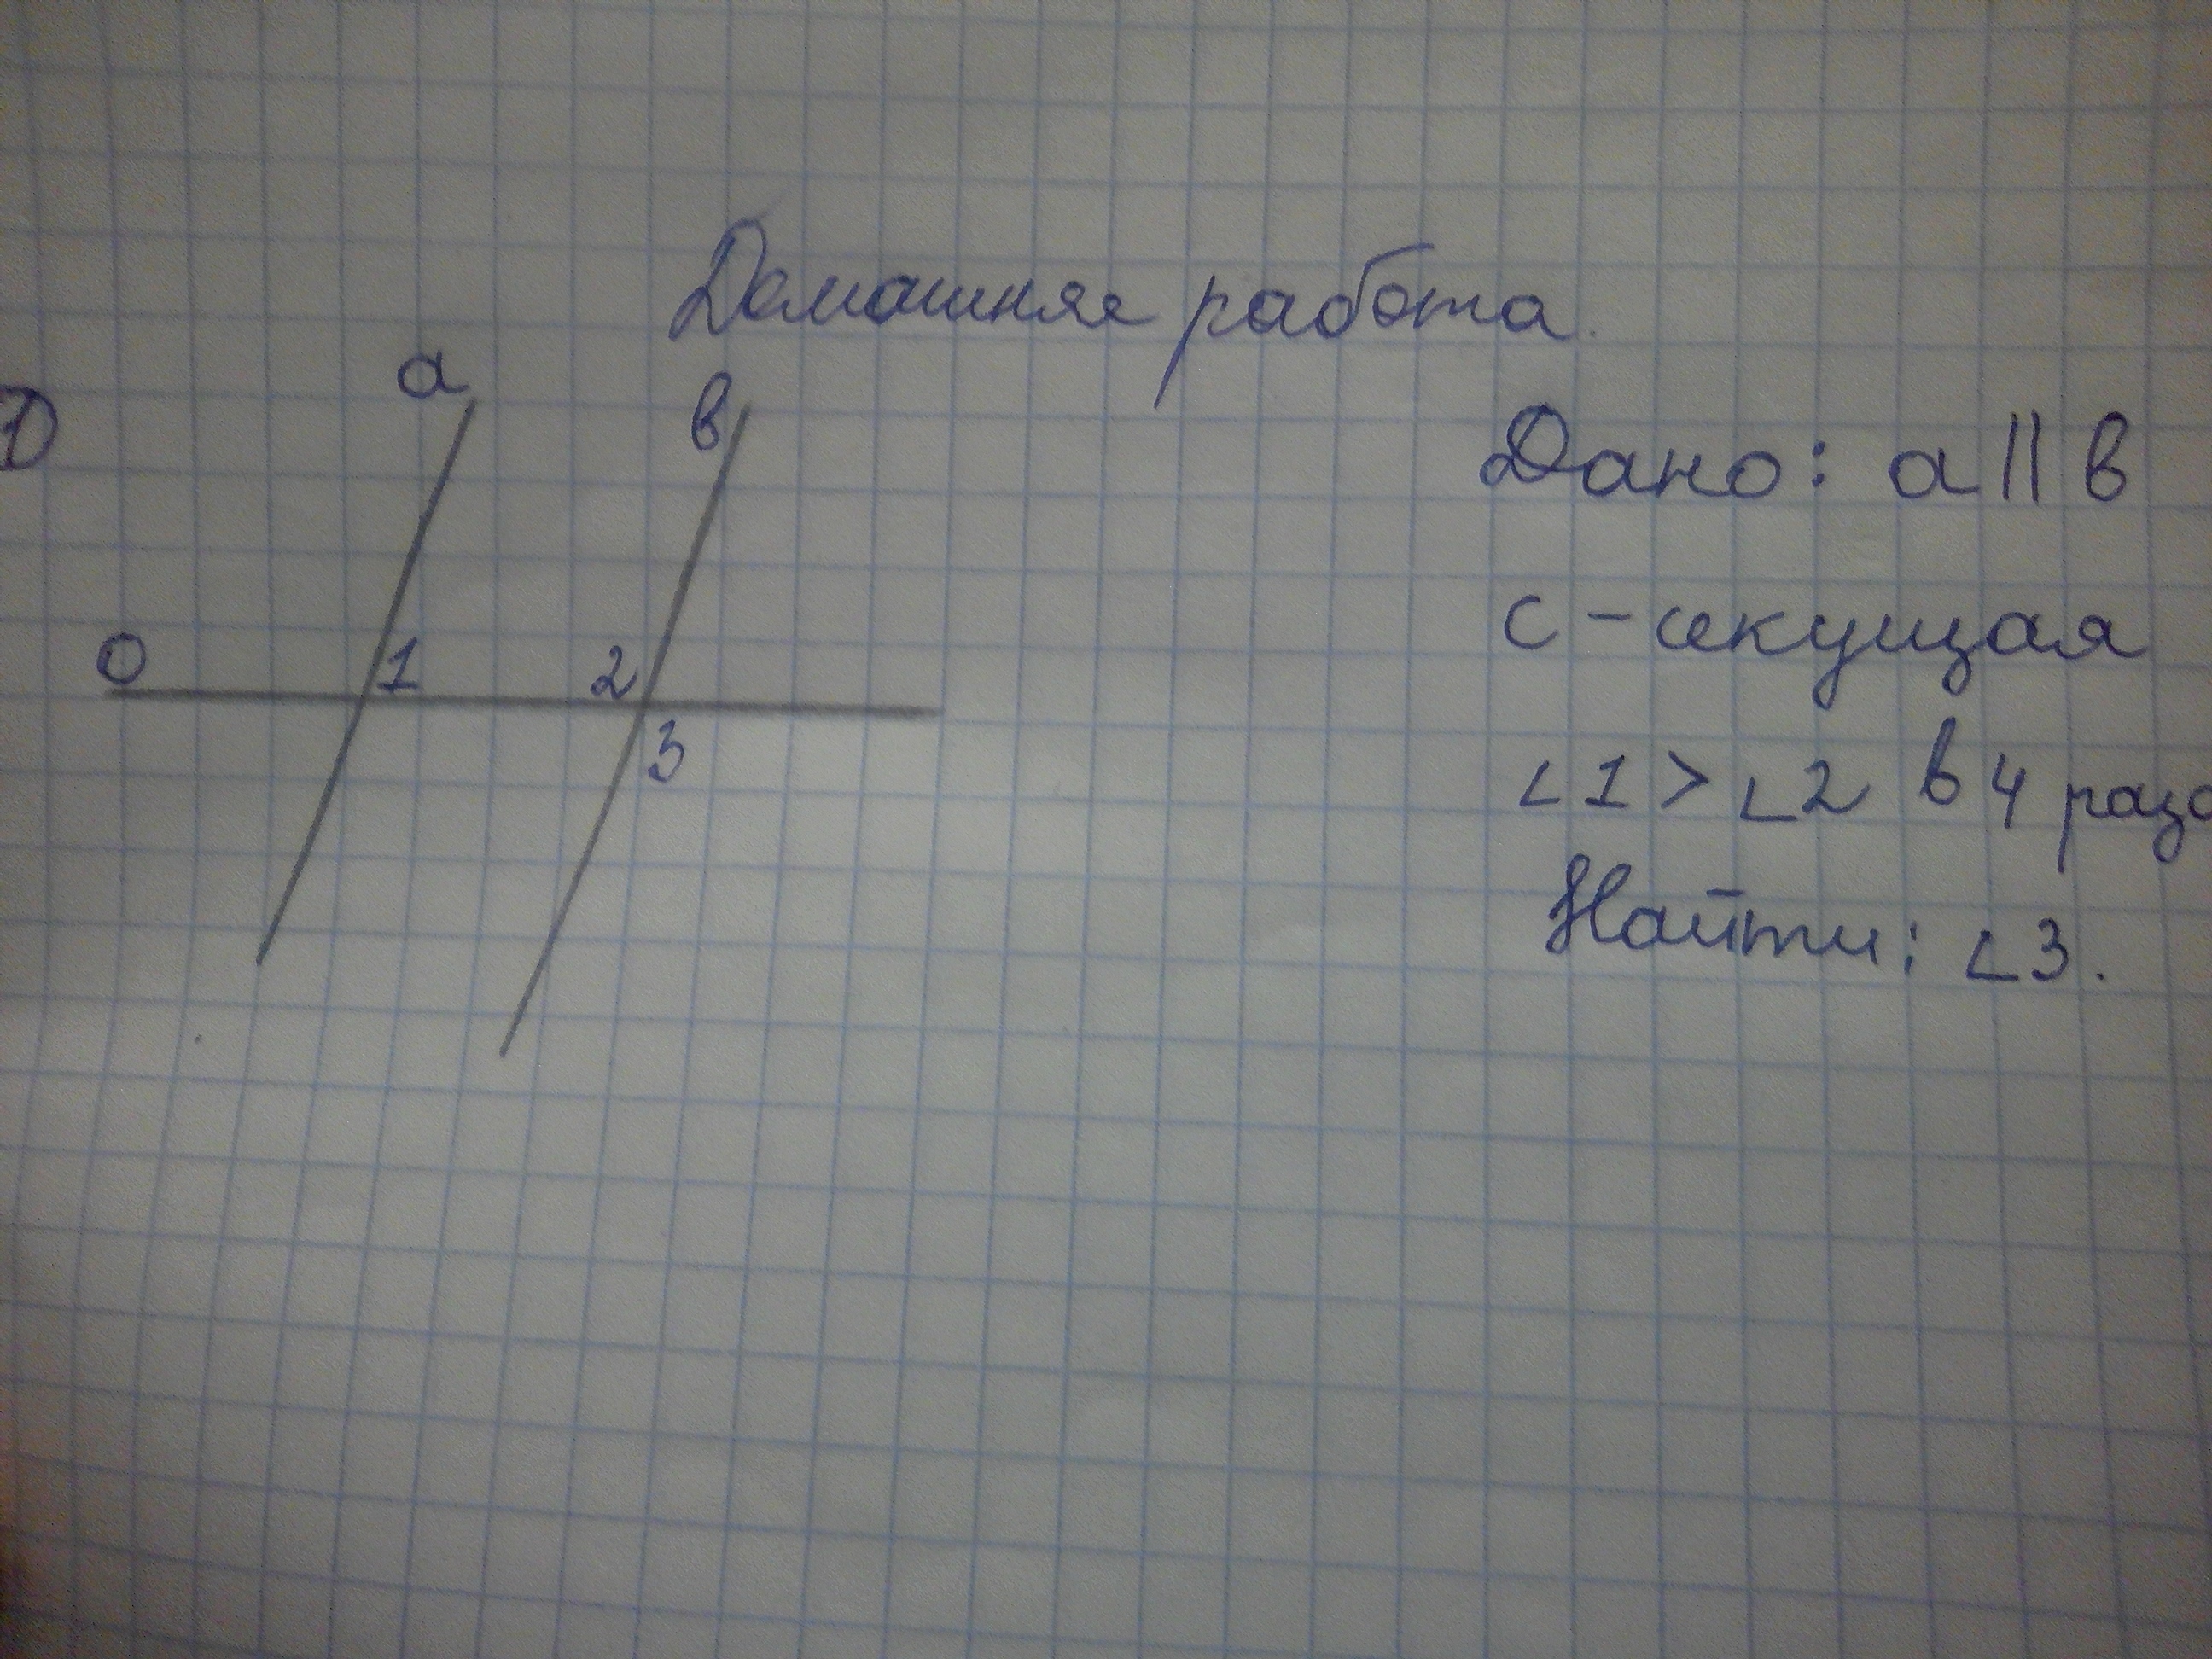 Домашняя работа.
1)
а
в
О
1
2
3
Дано: а || в
с - секущая
∠1 > ∠2 в 4 раза
Найти: ∠3.